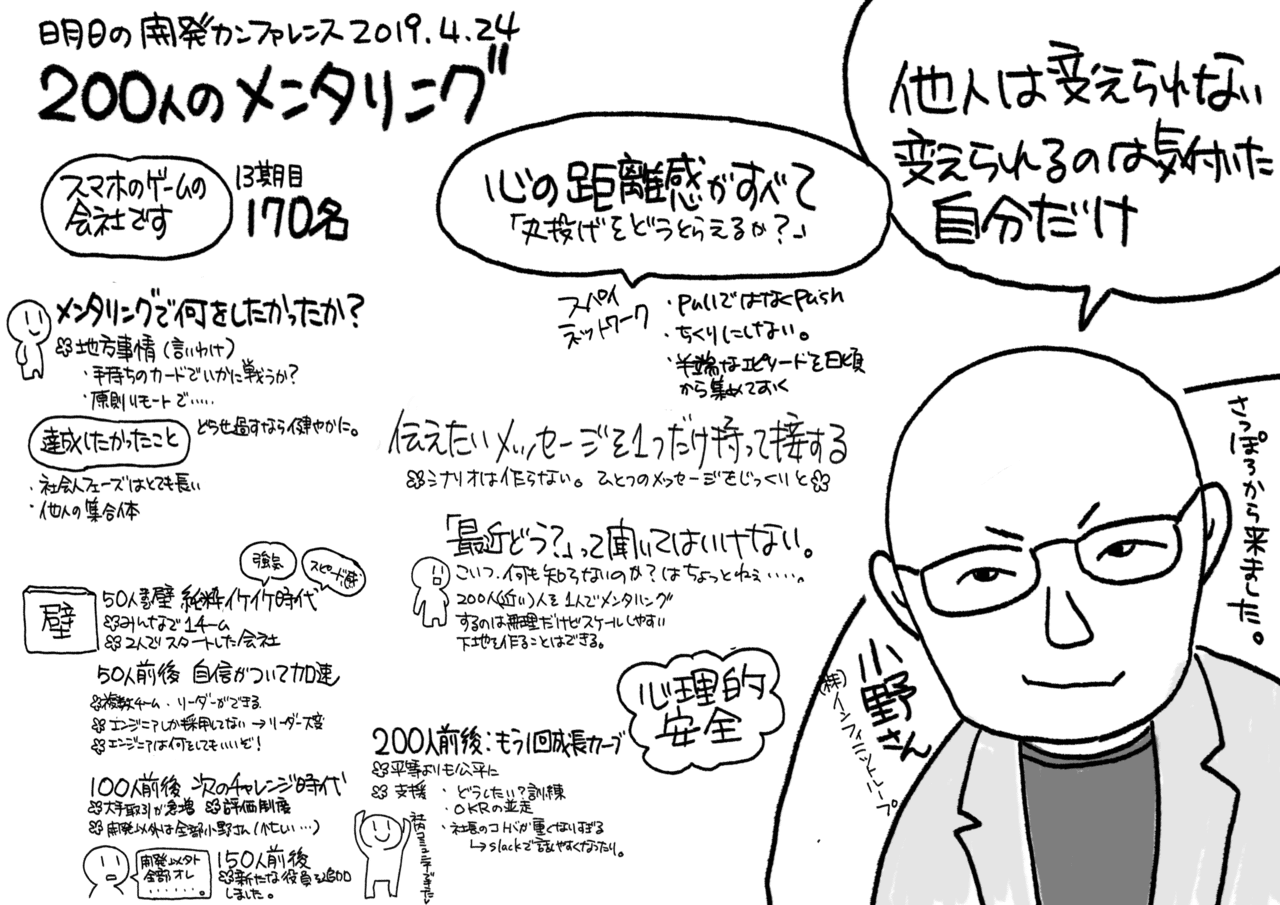 日月日の開発カンファレンス2019.4.24
200人のメンタリング
スマホのゲームの
会社です
13期目
170名
心の距離感がすべて
「丸投げをどうとらえるか？」
他人は変えられない
変えられるのは気付いた
自分だけ
メンタリングで何をしたかったか？
地方事情(言いわけ)
・手持ちのカードでいかに戦うか？
・原則リモートで・・・・・
達成したかったこと
どうせ過すなら健やかに。
・社会人フェーズはとても長い
・他人の集合体
スパイ
ネットワーク
・pullではなくpush
・ちくりにしない。
・半端なエピソードを日頃
から集めておく
伝えたいメッセージを1つだけ持って接する
シナリオは作らない。ひとつのメッセージをじっくりと
「最近どう？」って聞いてはいけない。
こいつ、何も知らないのか？はちょっとねぇ・・・・。
200人(近い)人を1人でメンタリング
するのは無理だけどスケールしやすい
下地を作ることはできる。
強気
スピード
壁
50人 壁 純粋イケイケ時代
みんなで1チーム
2人でスタートした会社
50人前後 自信がついて加速
複数チーム・リーダーができる
エンジニアしか採用してない→リーダー大変
エンジニアは何をしてもいいぞ！
100人前後 次のチャレンジ時代
大手取引が急増 評価制度
開発以外は全部小野さん(忙しい…)
開発以外
全部オレ
・・・・・・。
150人前後
新たな役員を追加
しました。
心理的
安全
200人前後：もう1回成長カーブ
平等よりも公平に
支援・どうしたい？訓練
・OKRの並走
・社長のコトバが重くなりすぎる
↳slackで話しやすくなったり。
社内コミュニティできた
さっぽろから来ました。
小野さん
(株)インフィニットループ